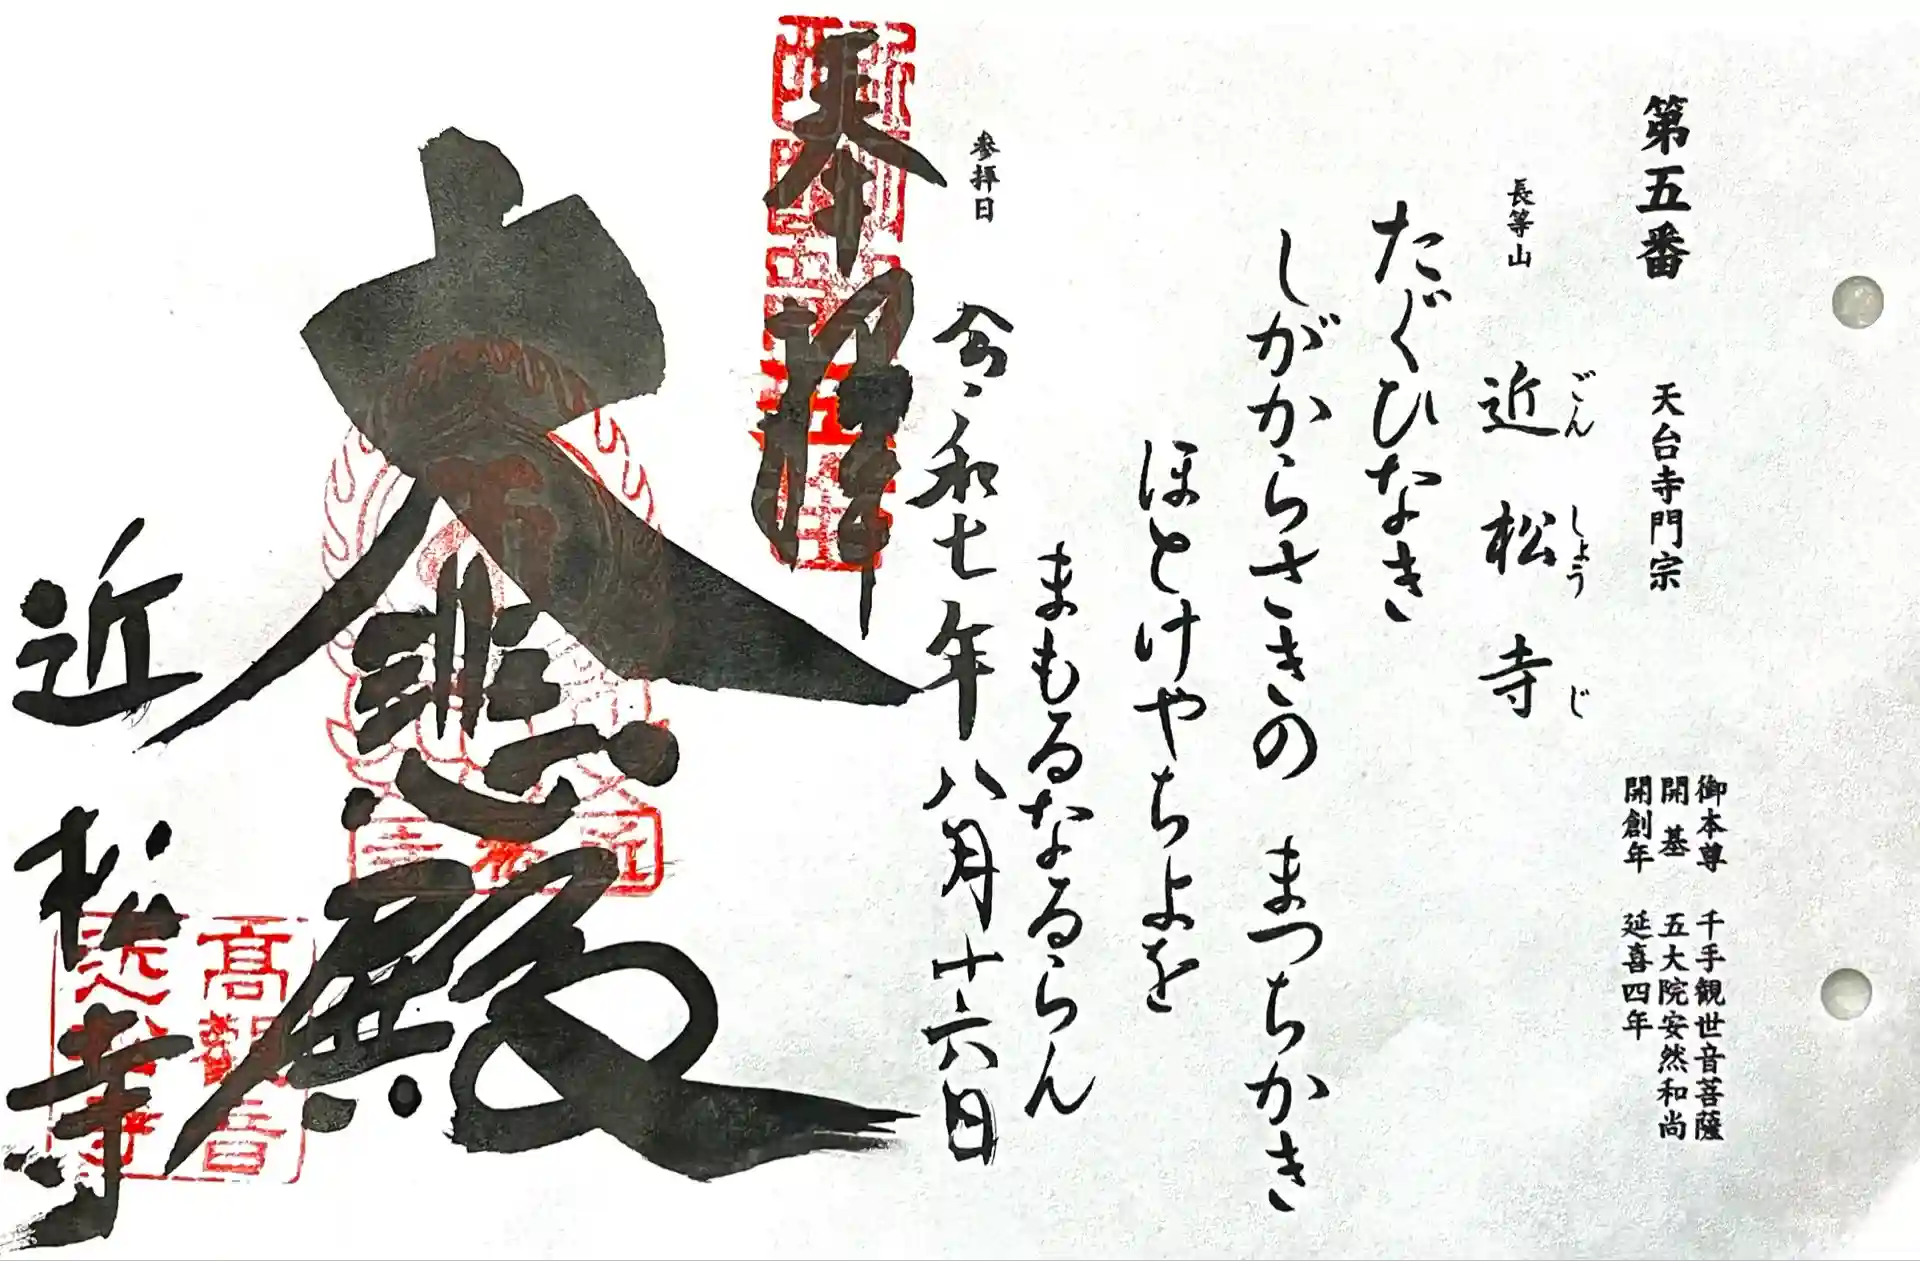 第五番 天台寺門宗
御本尊 千手観世音菩薩
開基 五大院安然和尚
開創年 延喜四年
長等山 近松寺
ごんしょうじ
たぐひなき
しがからさきの まつちかき
ほとけやちよを
まもるなるらん
参拝日
令和七年八月十六日
奉拝
大悲殿
近松寺
高観音
近松寺